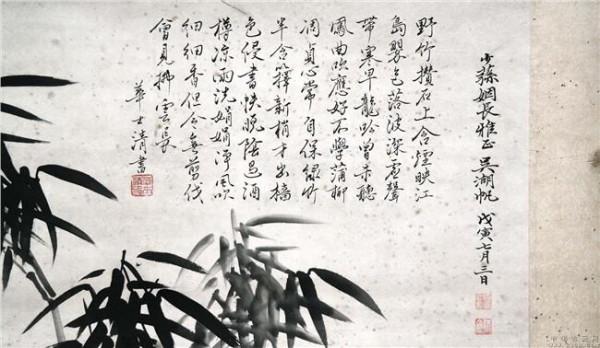 少孫姻長雅正 吳湖帆 戊寅七月三日
野竹攢石上含煙映江
島翠色落波深虛聲
帶寒早龍吟曾未聽
鳳曲吹應好不學蒲柳
凋貞心常自保綠竹
半含籜新梢才出牆
色侵書帙晚陰過酒
樽涼雨洗娟娟淨風吹
細細香但令無剪伐
會見拂雲長
華士清書